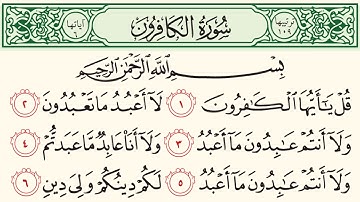 ترتيبها ١٠٩ سُورَةُ الكَافِرُون آياتها ٦
بِسْمِ اللَّهِ الرَّحْمَٰنِ الرَّحِيمِ
قُلْ يَٰٓأَيُّهَا الْكَٰفِرُونَ ١ لَآ أَعْبُدُ مَا تَعْبُدُونَ ٢
وَلَآ أَنتُمْ عَٰبِدُونَ مَآ أَعْبُدُ ٣ وَلَآ أَنَا۠ عَابِدٌ مَّا عَبَدتُّمْ ٤
وَلَآ أَنتُمْ عَٰبِدُونَ مَآ أَعْبُدُ ٥ لَكُمْ دِينُكُمْ وَلِيَ دِينِ ٦